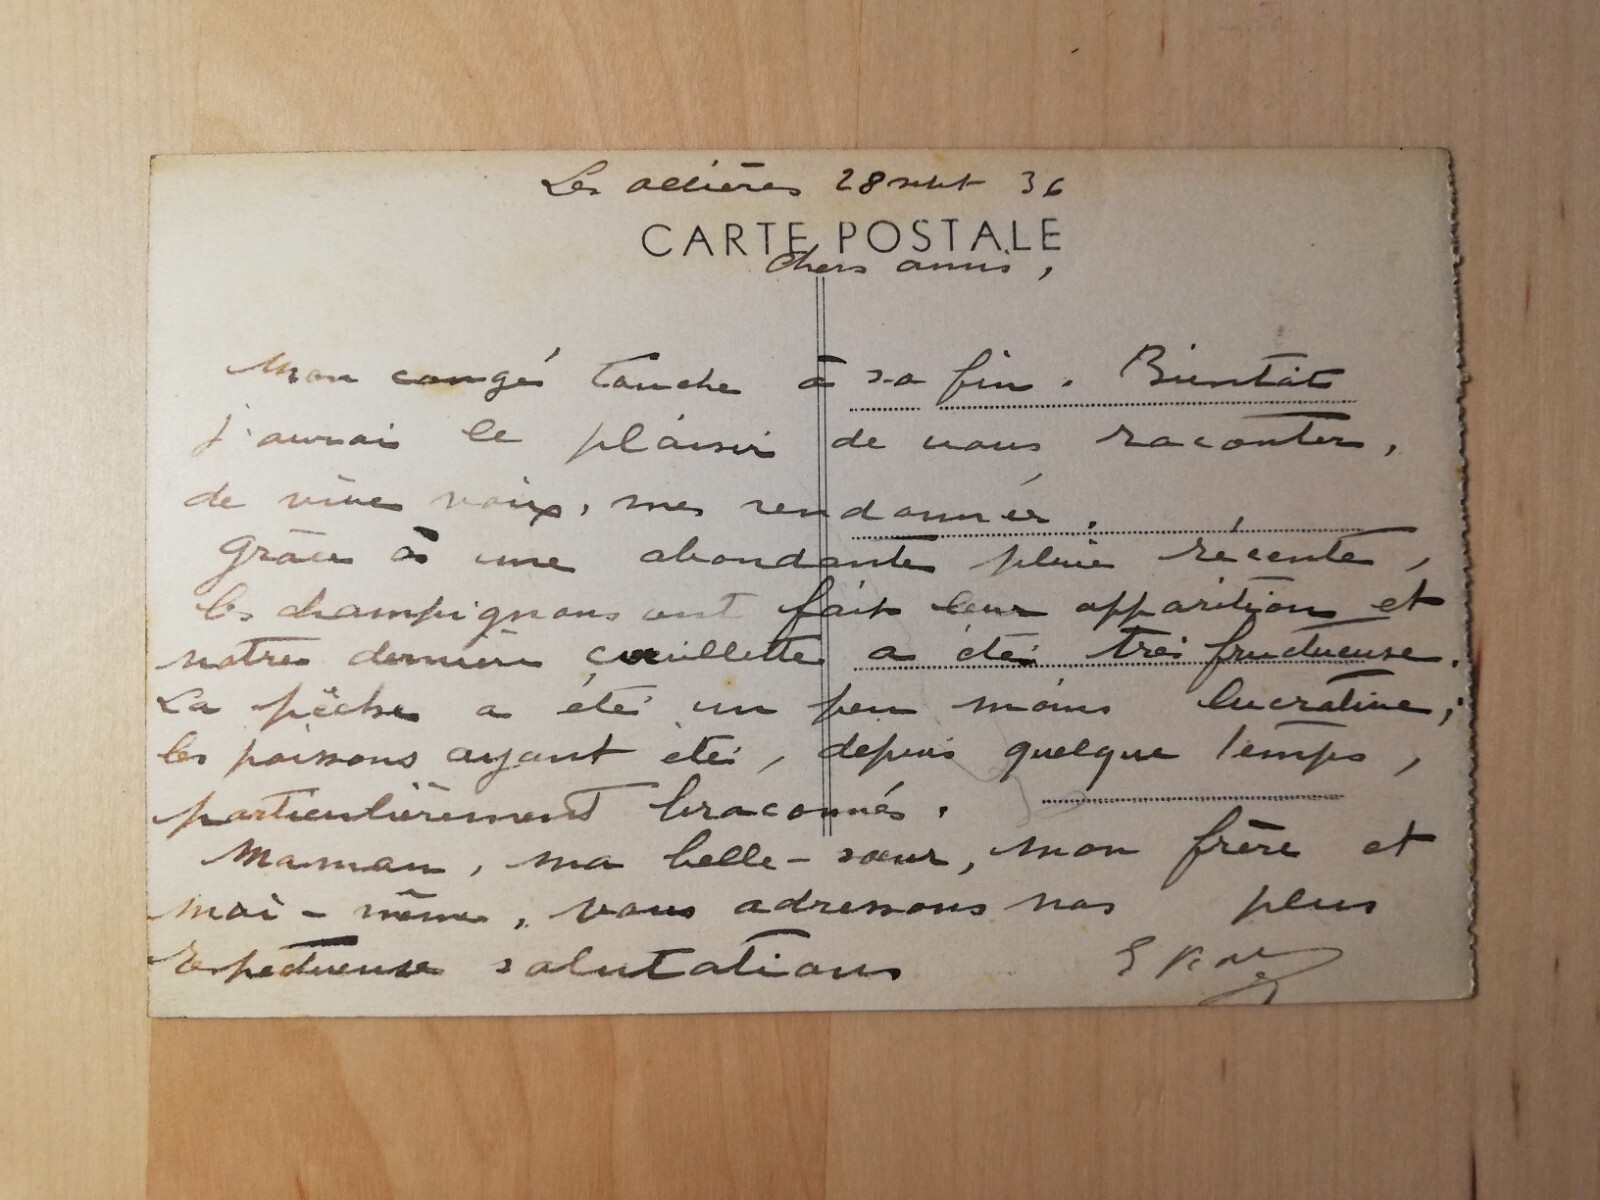 Les 28 sept 36
CARTE POSTALE
Chers amis,
Mon congé touche à sa fin. Bientôt
j'aurai le plaisir de vous raconter,
de vive voix, mes randonnées.
Grâce à une abondante pluie récente,
les champignons ont fait leur apparition et
notre dernière cueillette a été très fructueuse.
La pêche a été un peu moins lucrative;
les poissons ayant été, depuis quelque temps,
particulièrement braconnés.
Maman, ma belle-sœur, mon frère et
moi-même, vous adressons nos plus
respectueuses salutations